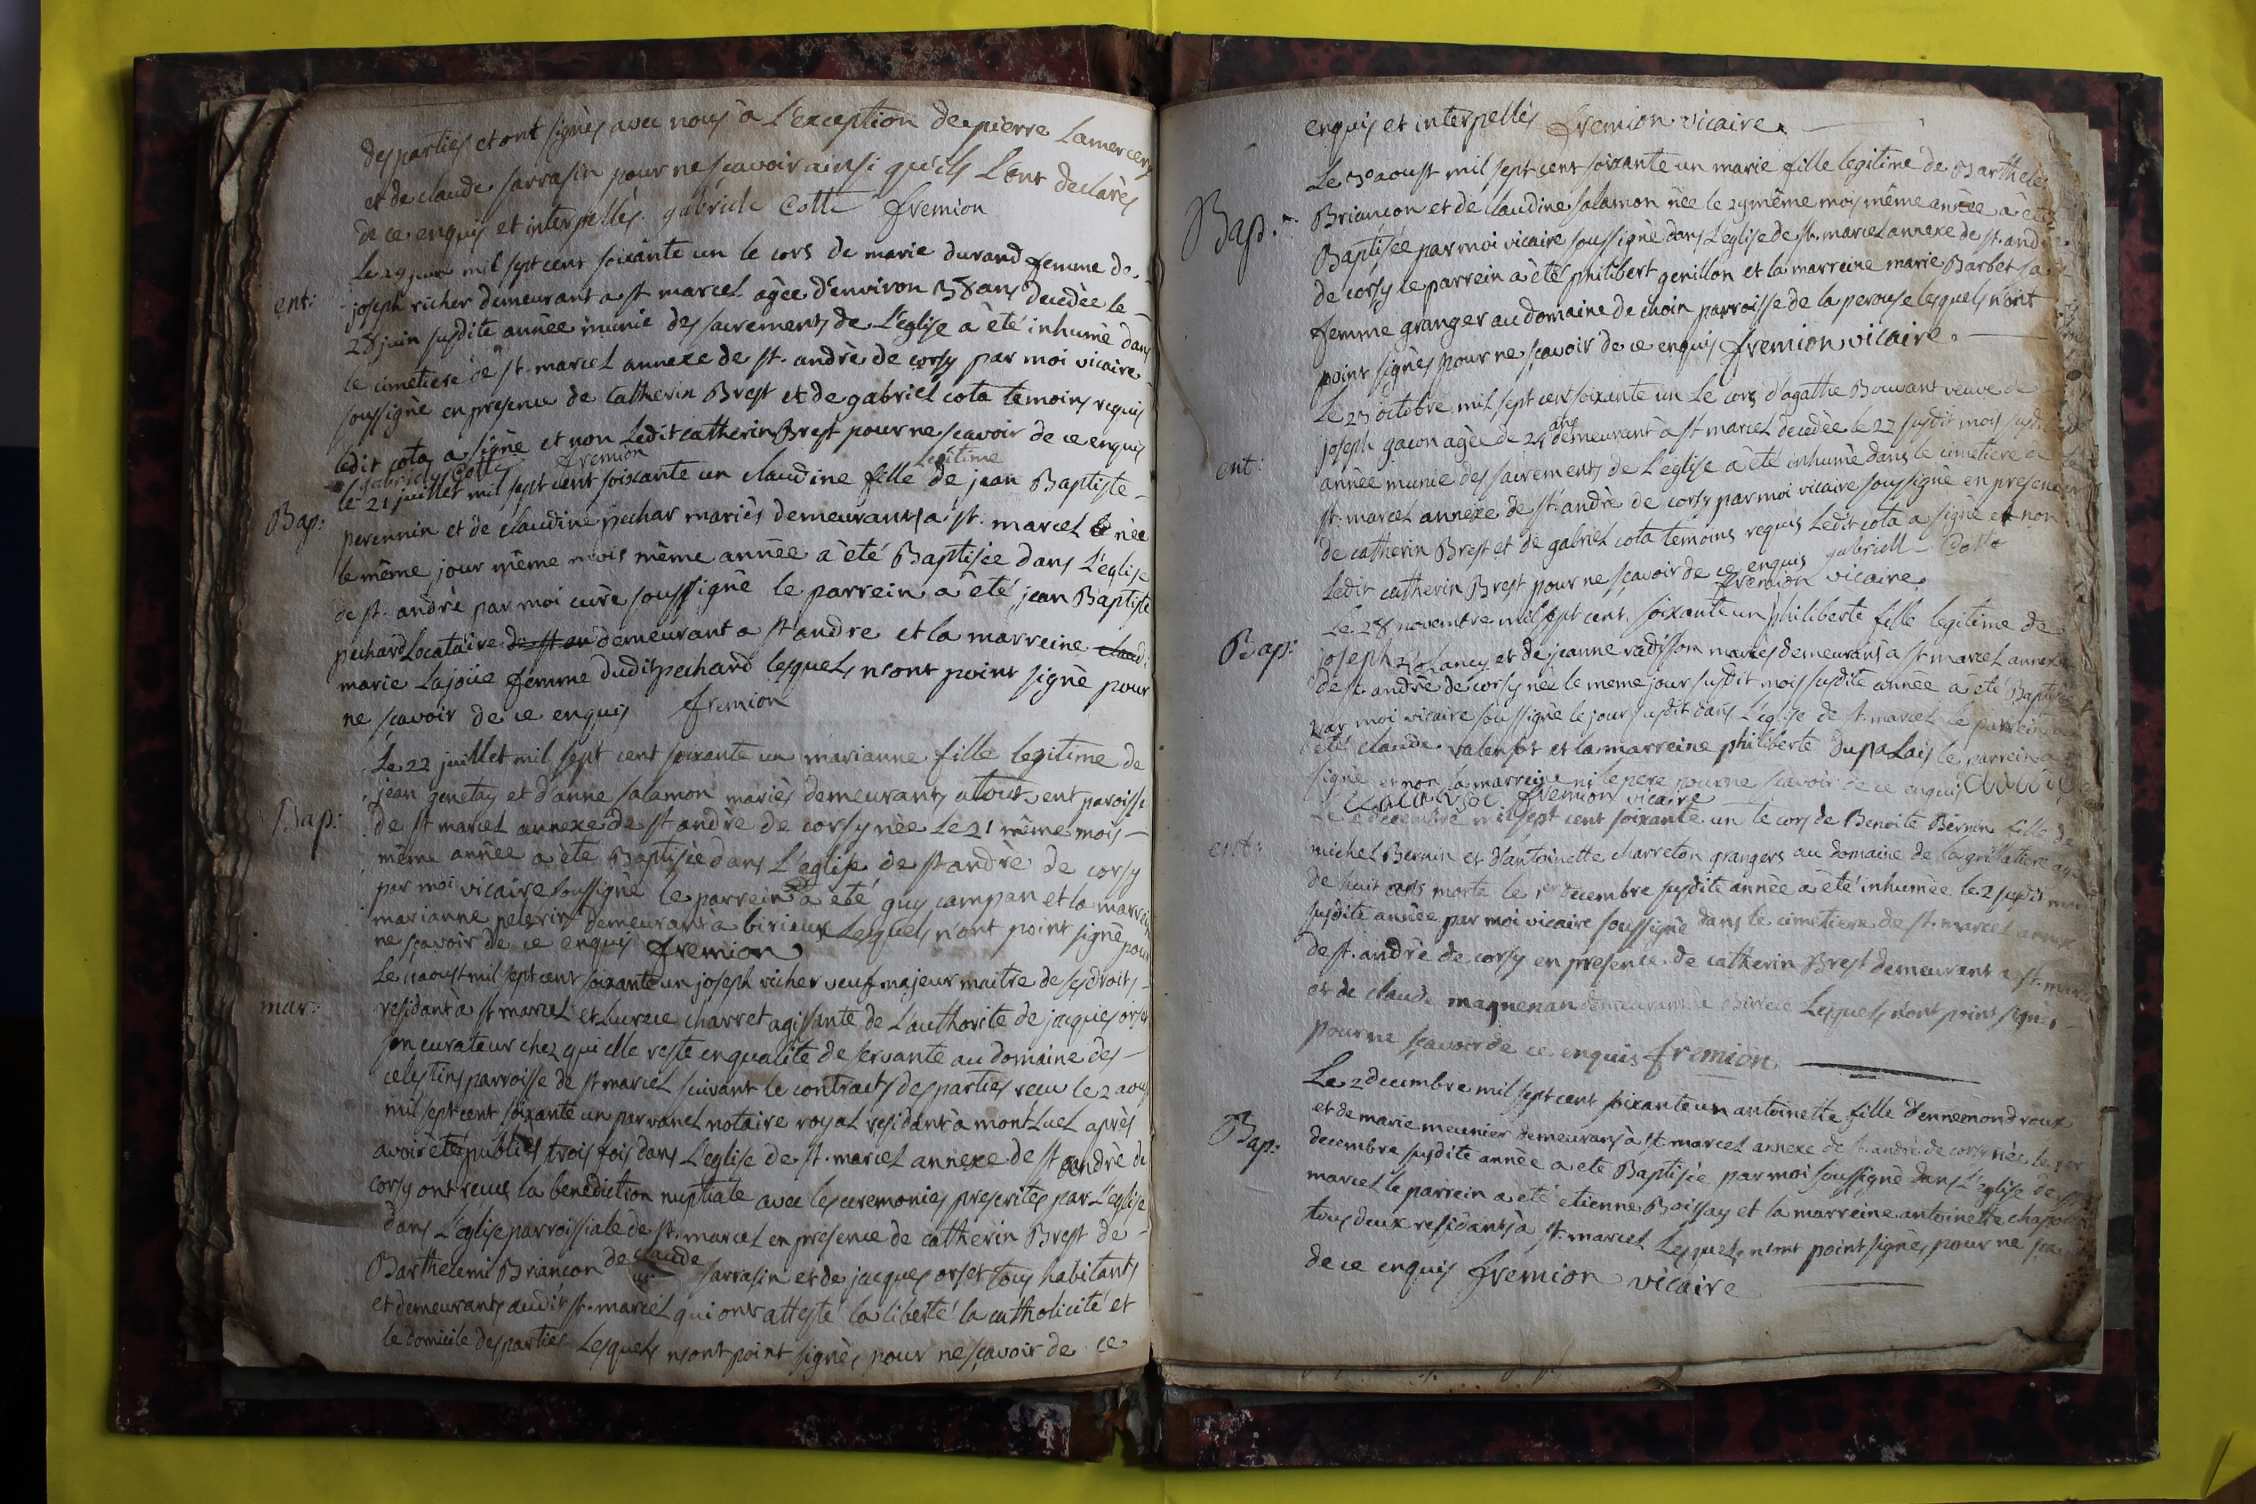 des parties et ont signés avec nous à L'exception de pierre Lamercery
et de claude sarrasin pour ne scavoir ainsi qu'ils L'ont declarés
de ce enquis et interpellés gabriele Cotte fremion
ent:
Le 29 juin mil sept cent soixante un le cors de marie durand femme de
joseph richer demeurant a st marcel agée d'environ 38 ans decedée le
28 juin susdite année munie des sacrements de L'eglise a été inhumé dans
le cimetiere de st. marcel annexe de st. andré de corsy par moi vicaire
soussigné en presence de Catherin Brest et de gabriel cota temoins requis
ledit cota a signé et non Ledit catherin Brest pour ne scavoir de ce enquis
gabriele Cotte fremion
Bap:
le 21 juillet mil sept cent soixante un claudine fille Legitime de jean Baptiste
perennin et de claudine pechar mariés demeurants a st. marcel née
le même jour même mois même année a été Baptisée dans L'eglise
de st. andré par moi curé soussigné le parrein a été jean Baptiste
pechard Locataire de st an demeurant a st andre et la marreine claud:
marie Lajoüe femme dudit pechard lesquels n'ont point signé pour
ne scavoir de ce enquis fremion
Bap:
Le 22 juillet mil sept cent soixante un marianne fille legitime de
jean genetay et d'anne salamon mariés demeurants a tout vent paroisse
de st marcel annexe de st andre de corsy née Le 21 même mois
même année a été Baptisée dans L'eglise de st andré de corsy
par moi vicaire soussigné le parrein a été guy campan et la marreine
marianne pelerin demeurant a birieux Lesquels n'ont point signé pour
ne scavoir de ce enquis fremion
mar:
Le aoust mil sept cent soixante un joseph richer veuf majeur maitre de ses droits
residant à st marcel et Lucrece charret agissante de L'authorité de jacques orset
son curateur chez qui elle reste en qualité de servante au domaine des
celestins parroisse de st marcel suivant le contracts des parties recu le 2 aoust
mil sept cent soixante un par vanel notaire royal residant à montLuel après
avoir été publiés trois fois dans L'eglise de st. marcel annexe de st andré de
corsy ont recus la benediction nuptiale avec les ceremonies prescrites par L'eglise
dans L'eglise parroissiale de st. marcel en presence de catherin Brest de
Barthelemi Briancon de claude sarrasin et de jacques orset tous habitants
et demeurants audit st. marcel qui ont attesté la liberté la catholicité et
le domicile des parties Lesquels n'ont point signés pour ne scavoir de ce
enquis et interpellés fremion vicaire
Bap:
Le 30 aoust mil sept cent soixante un marie fille legitime de Barthele
Briancon et de claudine salamon née le 29 même mois même année a été
Baptisée par moi vicaire soussigné dans L'eglise de st. marcel annexe de st. andré
de corsy le parrein a été philibert genillon et la marreine marie Barbet sa
femme granger au domaine de choin parroisse de la perouse lesquels n'ont
point signés pour ne scavoir de ce enquis fremion vicaire
ent:
Le 23 octobre mil sept cent soixante un Le cors d'agathe Bouvant veuve de
joseph gacon agée de 24 ans demeurant à st marcel decedée le 22 susdit mois susdite
année munie des sacrements de L'eglise a été inhumée dans le cimetiere de
st. marcel annexe de st. andré de corsy par moi vicaire soussigné en presence
de catherin Brest et de gabriel cota temoins requis Ledit cota a signé et non
Ledit catherin Brest pour ne scavoir de ce enquis gabriell Cotte
fremion vicaire
Bap:
Le 28 novembre mil sept cent soixante un philiberte fille legitime de
joseph Lancy et de jeanne radisson mariés demeurants a st marcel annexe
de st. andré de corsy née le meme jour susdit mois susdite année a été Baptisée
par moi vicaire soussigné le jour susdit dans L'eglise de st. marcel le parrein a
été claude valensot et la marreine philiberte Dupalais le parrein a
signé et non la marreine ni le pere pour ne scavoir de ce enquis
fremion vicaire
ent:
Le 2 decembre mil sept cent soixante un le cors de Benoite Bernin fille de
michel Bernin et d'antoinette charreton grangers au domaine de la grillatiere agée
de huit ans morte le 1er decembre susdite année a été inhumée le 2 susdit mois
susdite année par moi vicaire soussigné dans le cimetiere de st. marcel annexe
de st. andré de corsy en presence de catherin Brest demeurant a st. marcel
et de claude magnenan demeurant a Lesquels n'ont point signés
pour ne scavoir de ce enquis fremion
Bap:
Le 2 decembre mil sept cent soixante un antoinette fille d'ennemond roux
et de marie meunier demeurans à st. marcel annexe de st. andré de corsy née le 1er
decembre susdite année a eté Baptisée par moi soussigné dans L'eglise de st.
marcel le parrein a eté etienne Boissay et la marreine antoinette
tous deux residants à st. marcel Lesquels n'ont point signés pour ne sca
de ce enquis fremion vicaire